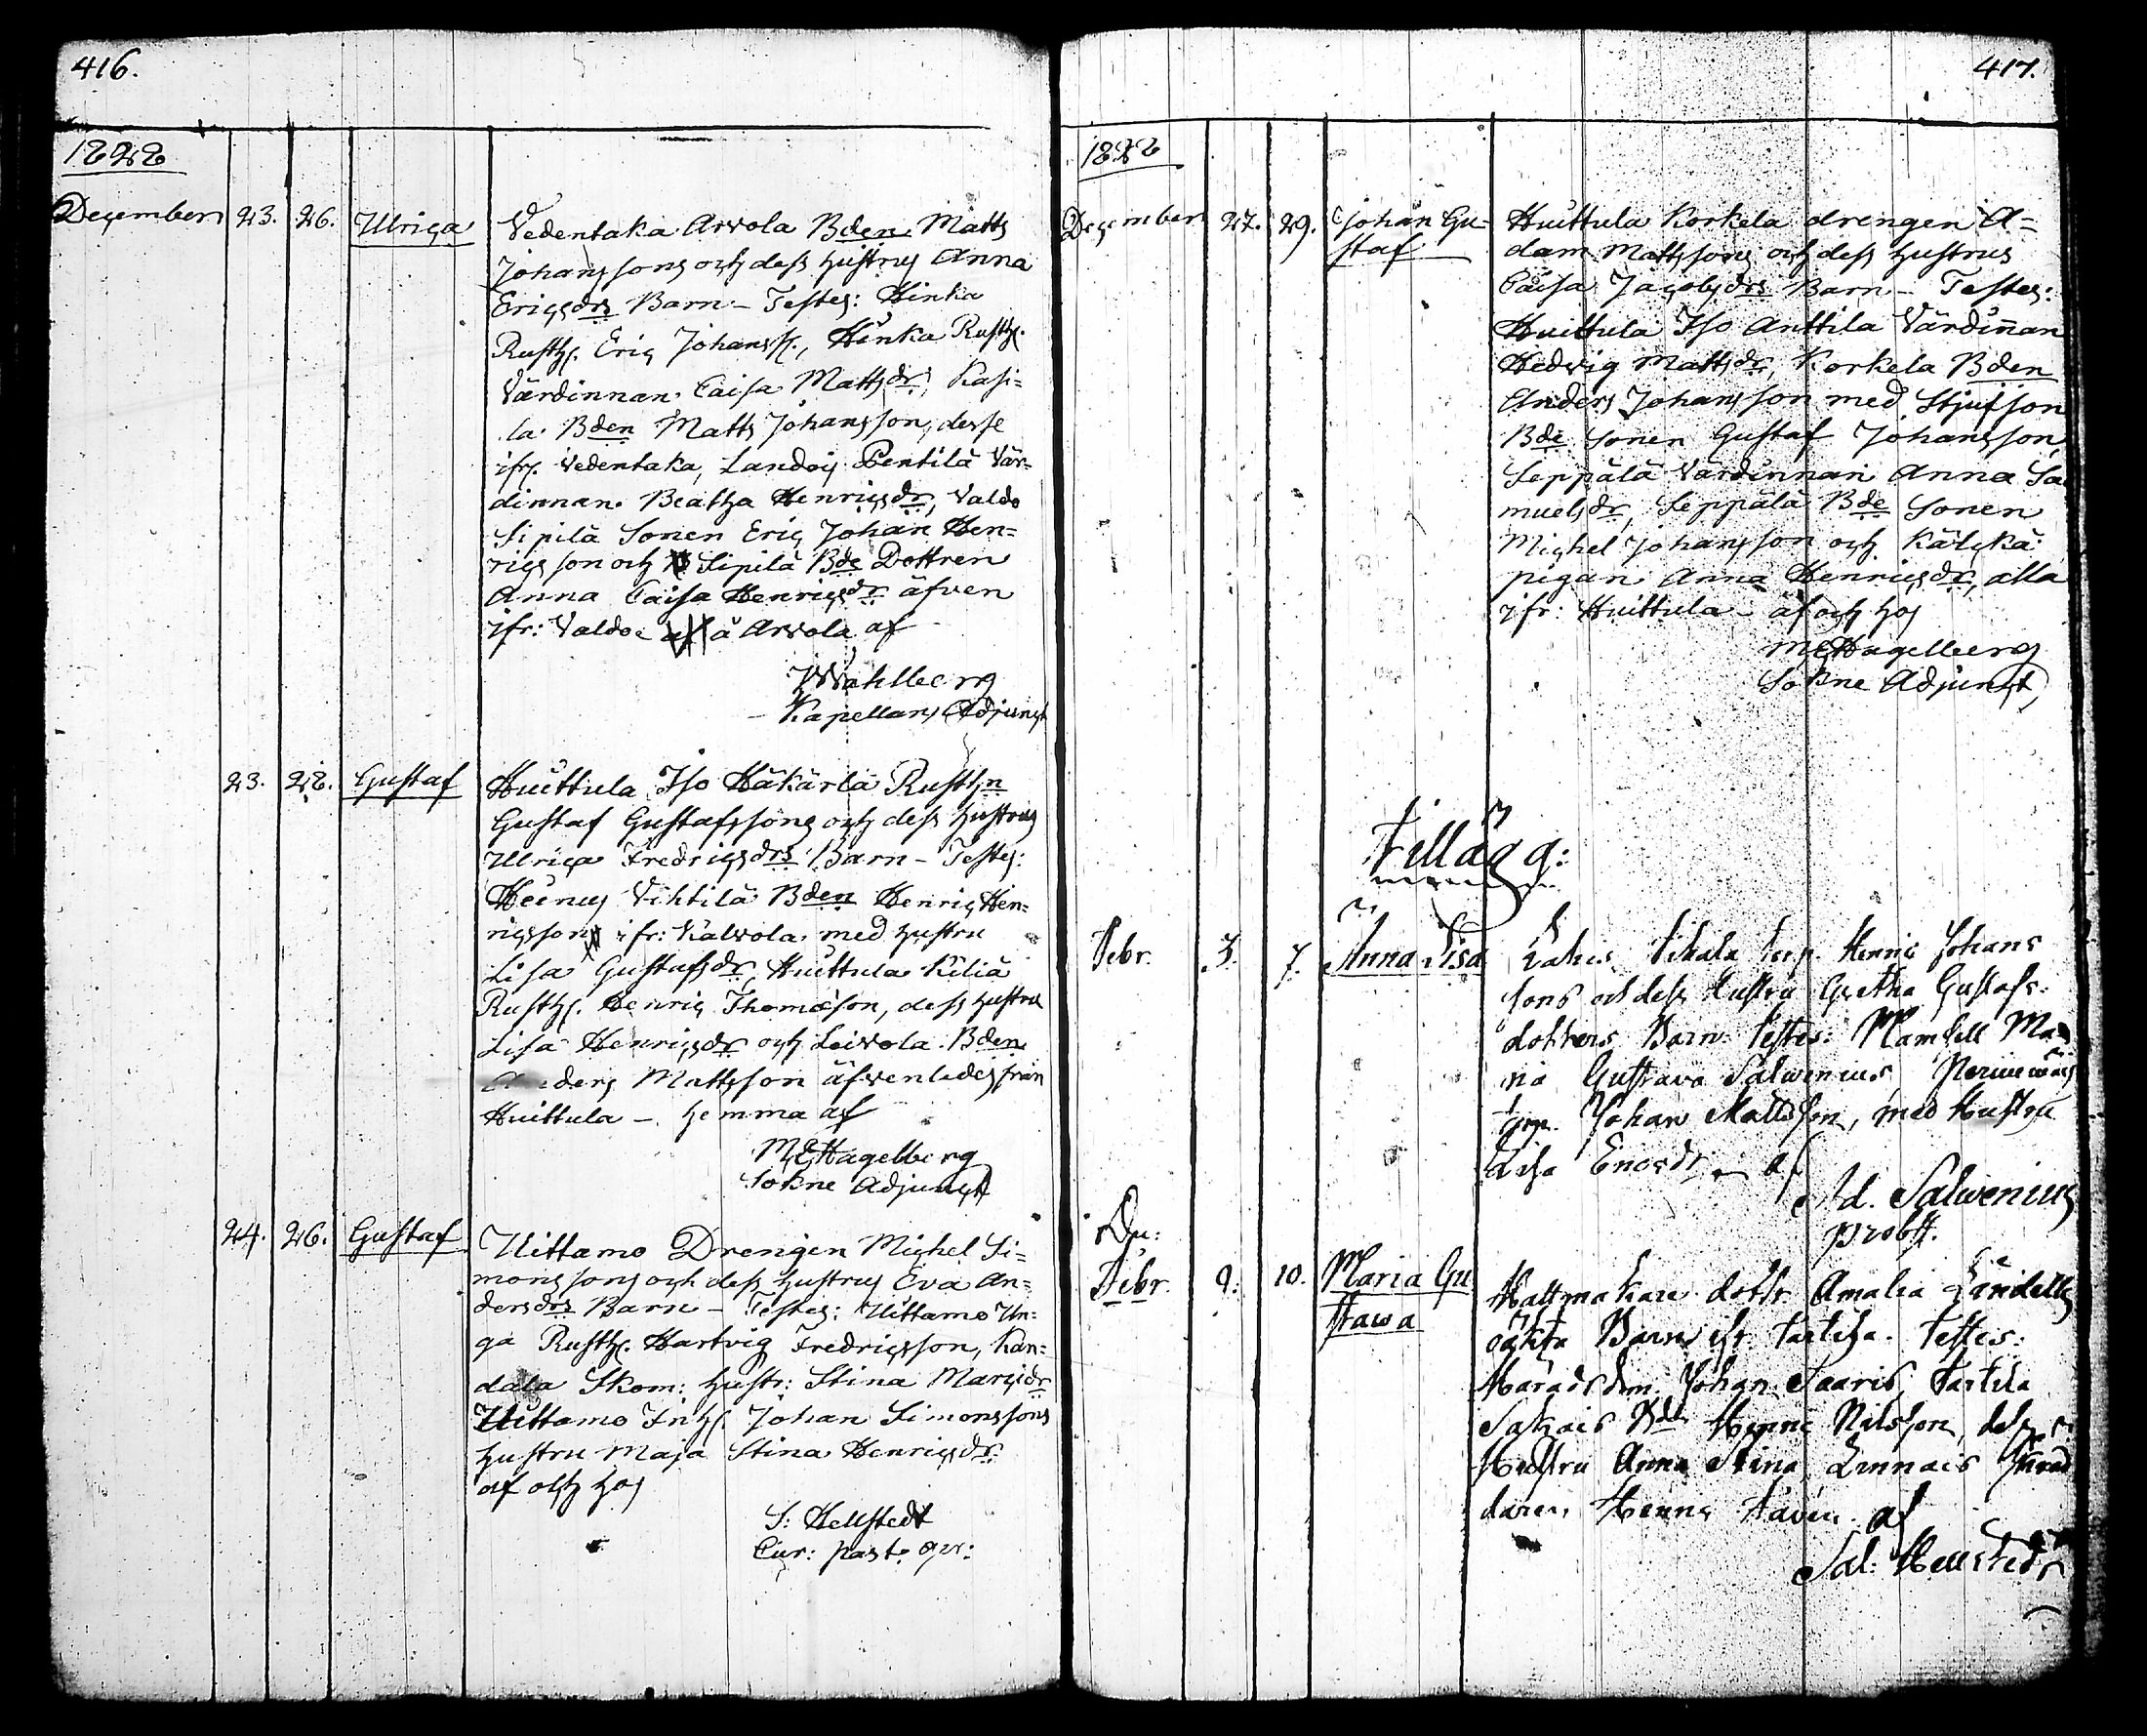 416.
1828
December 23. 26. Ulrica Vedentaka Arvola Bden Matts
Johanssons och dess hustrus Anna
Ericsdrs Barn – Testes: Hinka
Rusth. Eric Johanss., Hinka Rusth.
Värdinnan Caisa Mattsdr, Kasi=
la Bden Matts Johansson, desse
ifr. Vedentaka, Landoij Pentilä Vär=
dinnan Beatha Henricsdr, Valdo
Sipilä Sonen Eric Johan Hen=
ricsson och Sipilä Bde Dottren
Anna Caisa Henricsdr äfven
ifr: Valdo: å Arvola af
Wahlberg
Kapellans Adjunct
23. 28. Gustaf Huittula Iso Häkärlä Rusthn
Gustaf Gustafssons och dess hustrus
Ulrica Fredricsdrs Barn – Testes:
Heinus Vihtilä Bden Henric Hen=
ricsson ifr: Kalvola med hustru
Lisa Gustafsdr, Huittula Kiliä
Rusth. Henric Thomæson, dess hustru
Lisa Henricsdr och Leivola Bden
Anders Mattsson äfvenledes från
Huittula – hemma af
MEHagelberg
Sokne Adjunct
24. 26. Gustaf Uittamo Drengen Michel Si=
monssons och dess hustrus Eva An=
dersdrs Barn – Testes: Uittamo Un=
ga Rusth. Hartvig Fredricsson, Kan=
dala Skom: hustr: Stina Marcsdr
Uittamo Inh. Johan Simonssons
hustru Maja Stina Henricsdr
af och hos
S: Hellstedt
Cur: past: opr:
417.
1828
December 27. 29. Johan Gu= Huittula Korkela drengen A=
staf dam Mattssons och dess hustrus
Caisa Jacobsdrs Barn – Testes:
Huittula Iso Anttila Värdinnan
Hedvig Mattsdr, Korkela Bden
Anders Johansson med Stjufson
Bde Sonen Gustaf Johansson,
Seppälä Värdinnan Anna Sa
muelsdr, Seppälä Bde Sonen
Michel Johansson och Kälckä
pigan Anna Henricsdr, alla
ifr: Huittula – af och hos
MEHagelberg
Sokne Adjunct
Tillägg:
Febr. 3. 7. Anna Lisa Tikala torp. Henric Johans
sons och dess Hustru Gretha Gustafs-
dotters Barn. Testes: Mamsell Ma
ria Gustava Salvenius,
torp. Johan Mattsson, med Hustru
Lisa Enocsdr – af
Ad. Salvenius
Probst.
Du:
Febr. 9. 10. Maria Gu Hattmakare dottr Amalia Lindells
stava oäkta Barn ifr Tartila. Testes:
Häradsdm. Johan Saaris, Tartila
Bde Henric Nilsson, dess
Hustru Anna Stina, Linnais Skräd
daren Henric af
Sal: Hellstedt